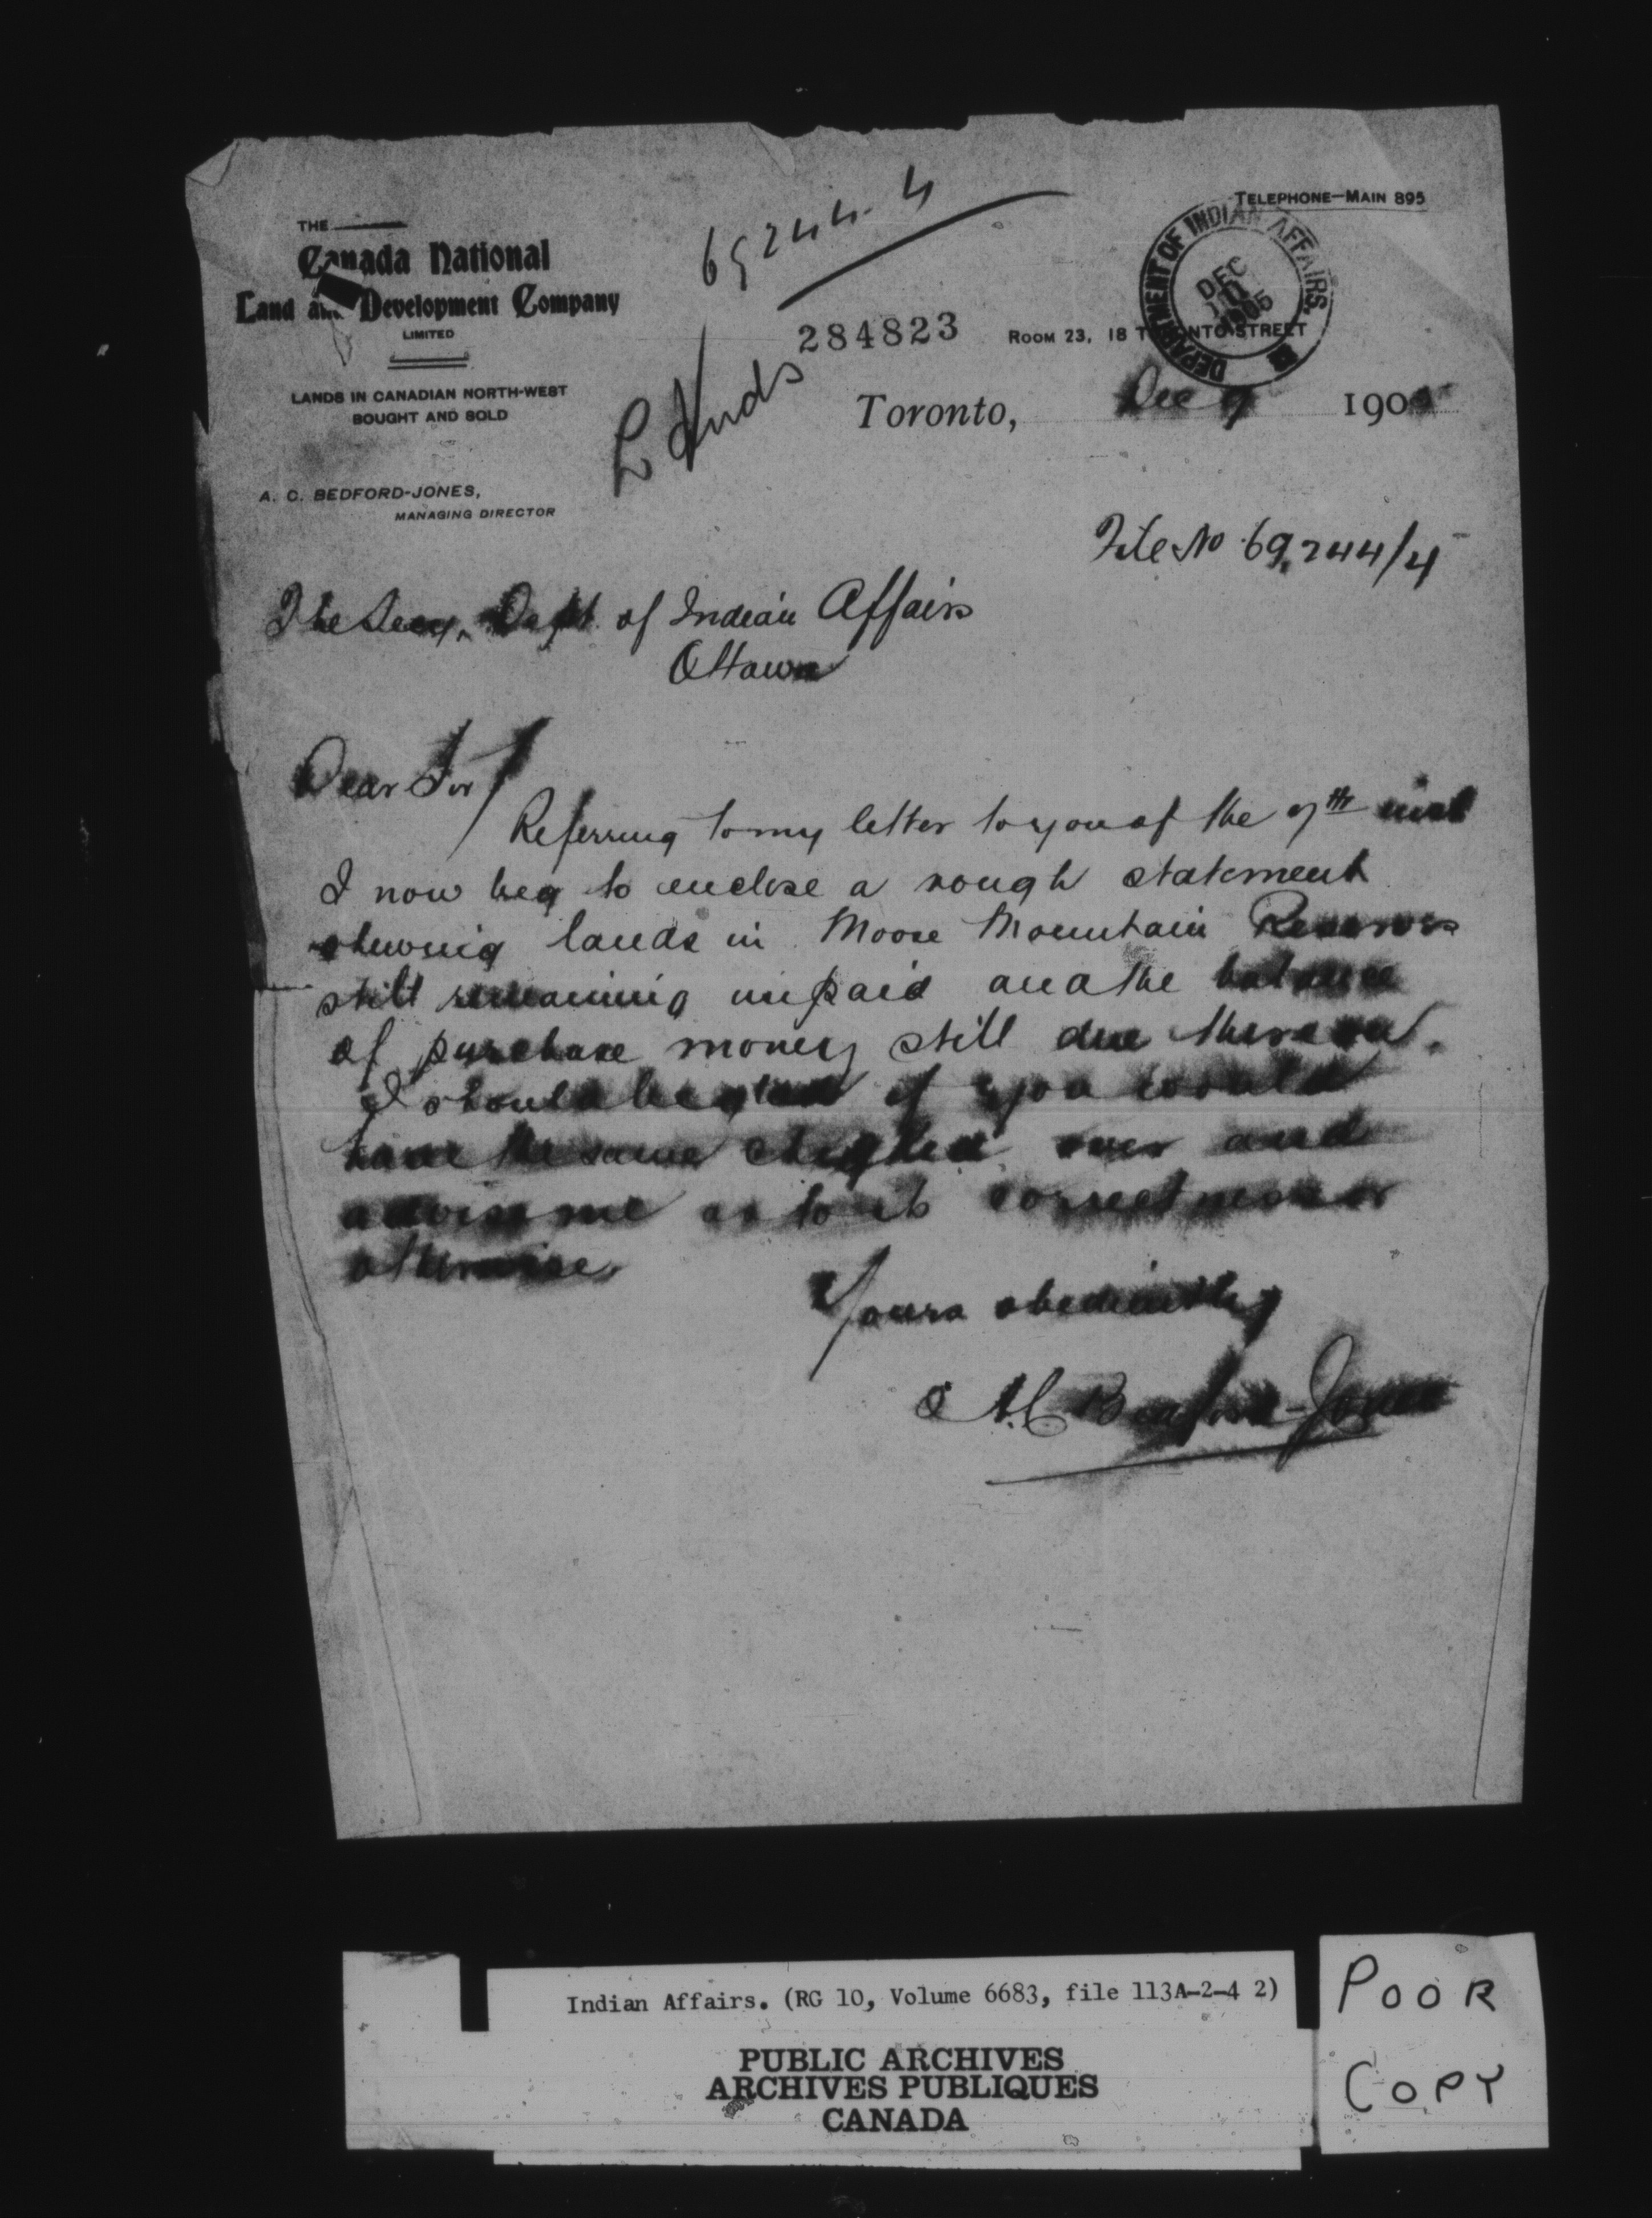 TELEPHONE—MAIN 895
THE
Canada National
Land and Development Company
LIMITED
LANDS IN CANADIAN NORTH-WEST
BOUGHT AND SOLD
A. C. BEDFORD-JONES,
MANAGING DIRECTOR
69244-4
284823
DEPARTMENT OF INDIAN AFFAIRS.
DEC
1905
ROOM 23, 18 TORONTO STREET
Toronto, Dec 9 1905
File No 69,244/4
The Secy, Dept. of Indian Affairs
Ottawa
Dear Sir
Referring to my letter to you of the 7th inst
I now beg to enclose a rough statement
shewing lands in Moose Mountain Reserves
still remaining unpaid and the balance
of purchase money still due thereon.
I should be glad if you would
have the same checked over and
advise me as to its correctness or
otherwise.
Yours obediently
A.C. Bedford-Jones
Indian Affairs. (RG 10, Volume 6683, file 113A-2-4 2)
PUBLIC ARCHIVES
ARCHIVES PUBLIQUES
CANADA
POOR
COPY